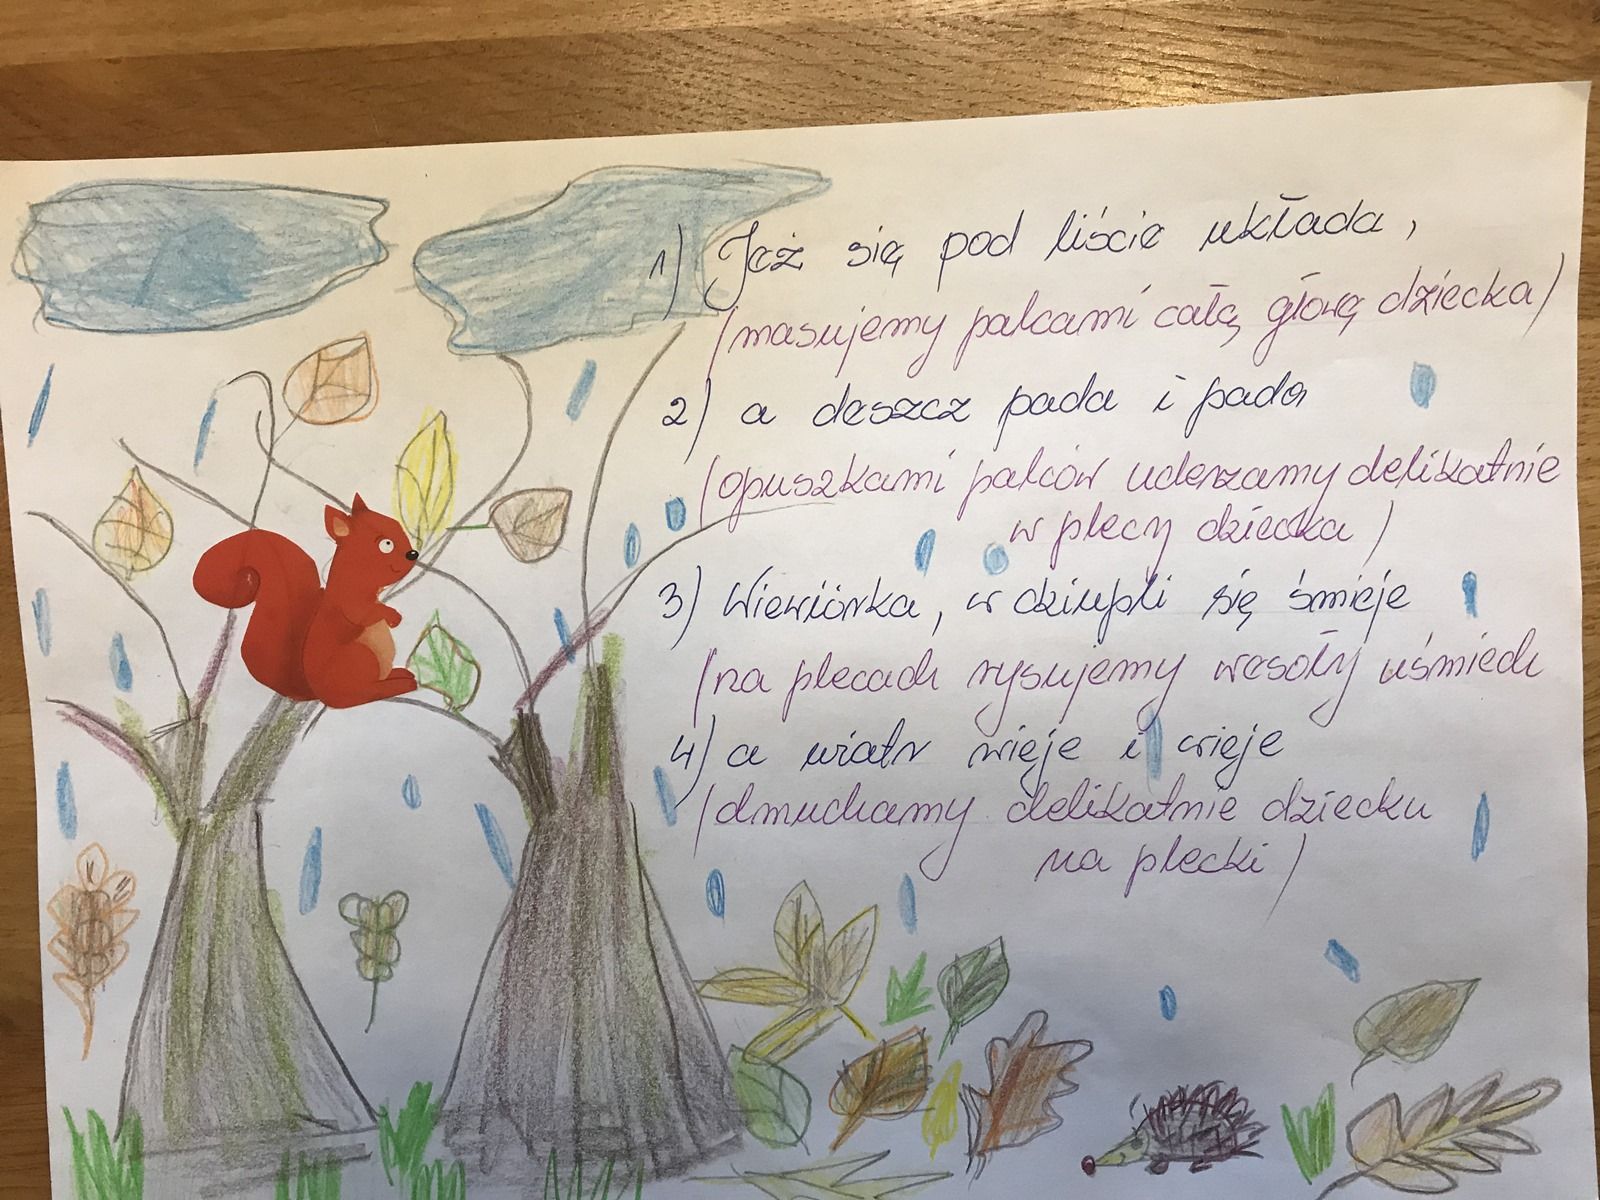 1) Jeż się pod liście układa,
/masujemy palcami całą głowę dziecka/
2) a deszcz pada i pada
/opuszkami palców uderzamy delikatnie
w plecy dziecka/
3) Wiewiórka, w dziupli się śmieje
/na plecach rysujemy wesoły uśmiech
4) a wiatr wieje i wieje
/dmuchamy delikatnie dziecku
na plecki/